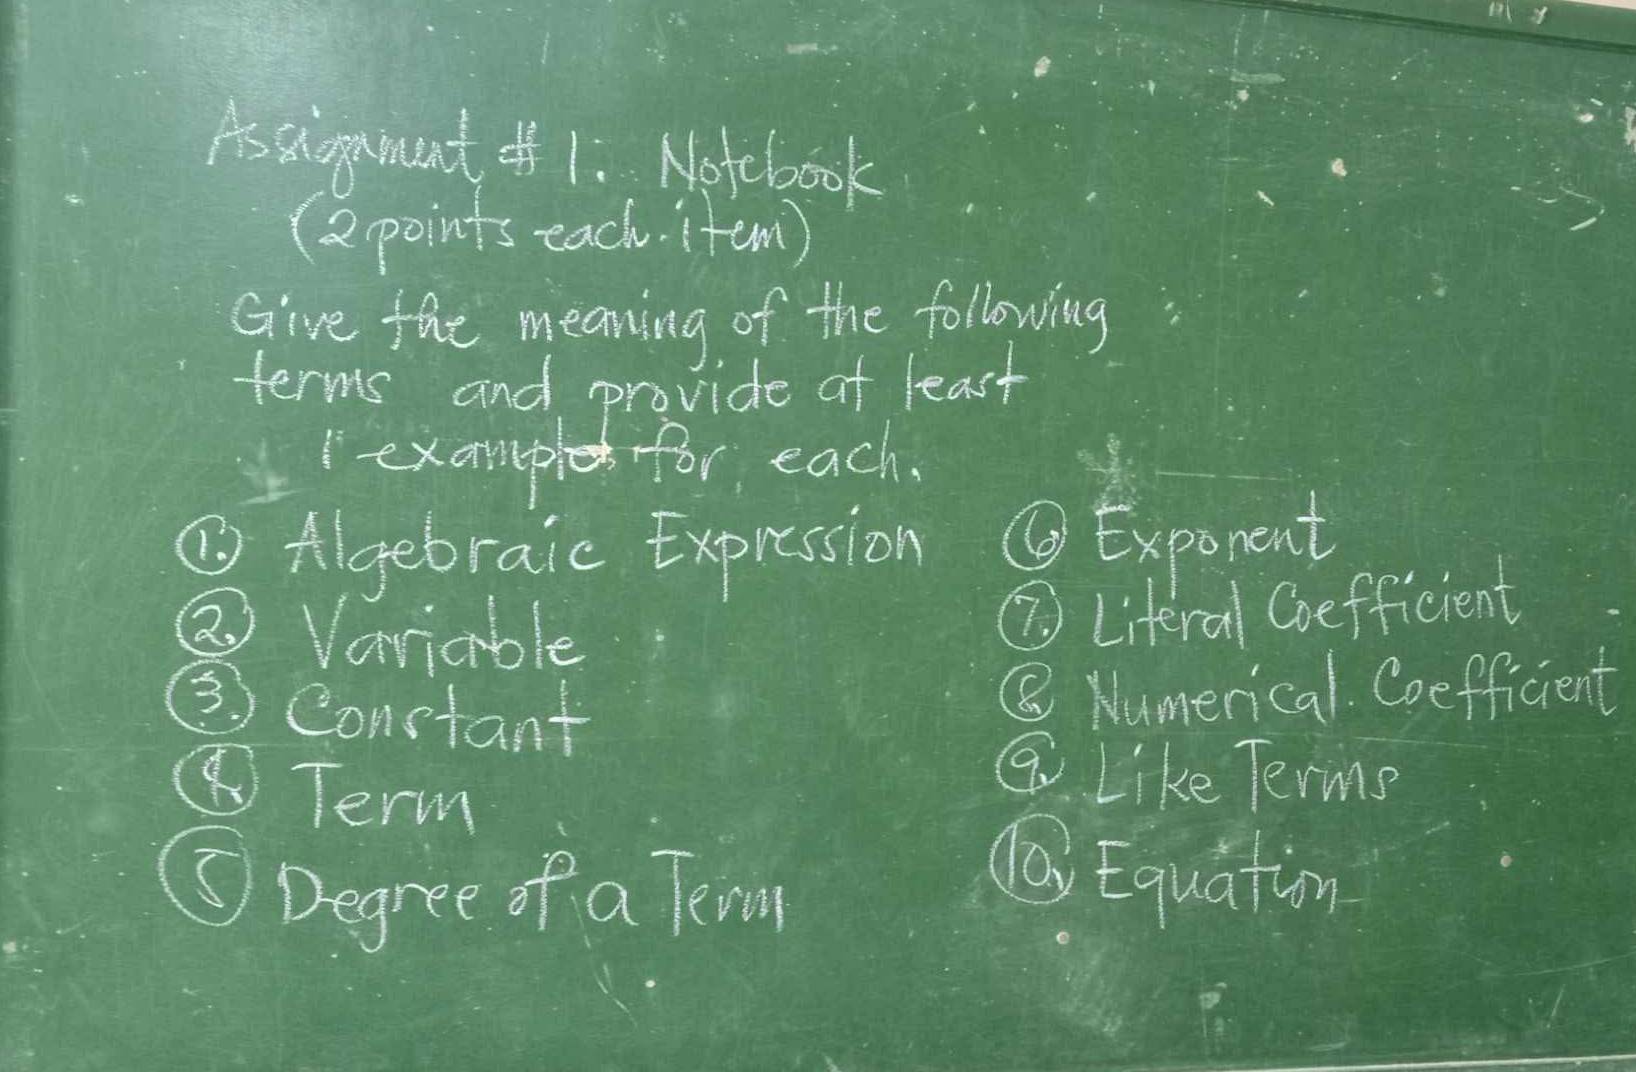 Assignment # 1: Notebook
(2 points each item)
Give the meaning of the following
terms and provide at least
1 example for each.
1. Algebraic Expression
2. Variable
3. Constant
4. Term
5. Degree of a Term
6. Exponent
7. Literal Coefficient
8. Numerical Coefficient
9. Like Terms
10. Equation